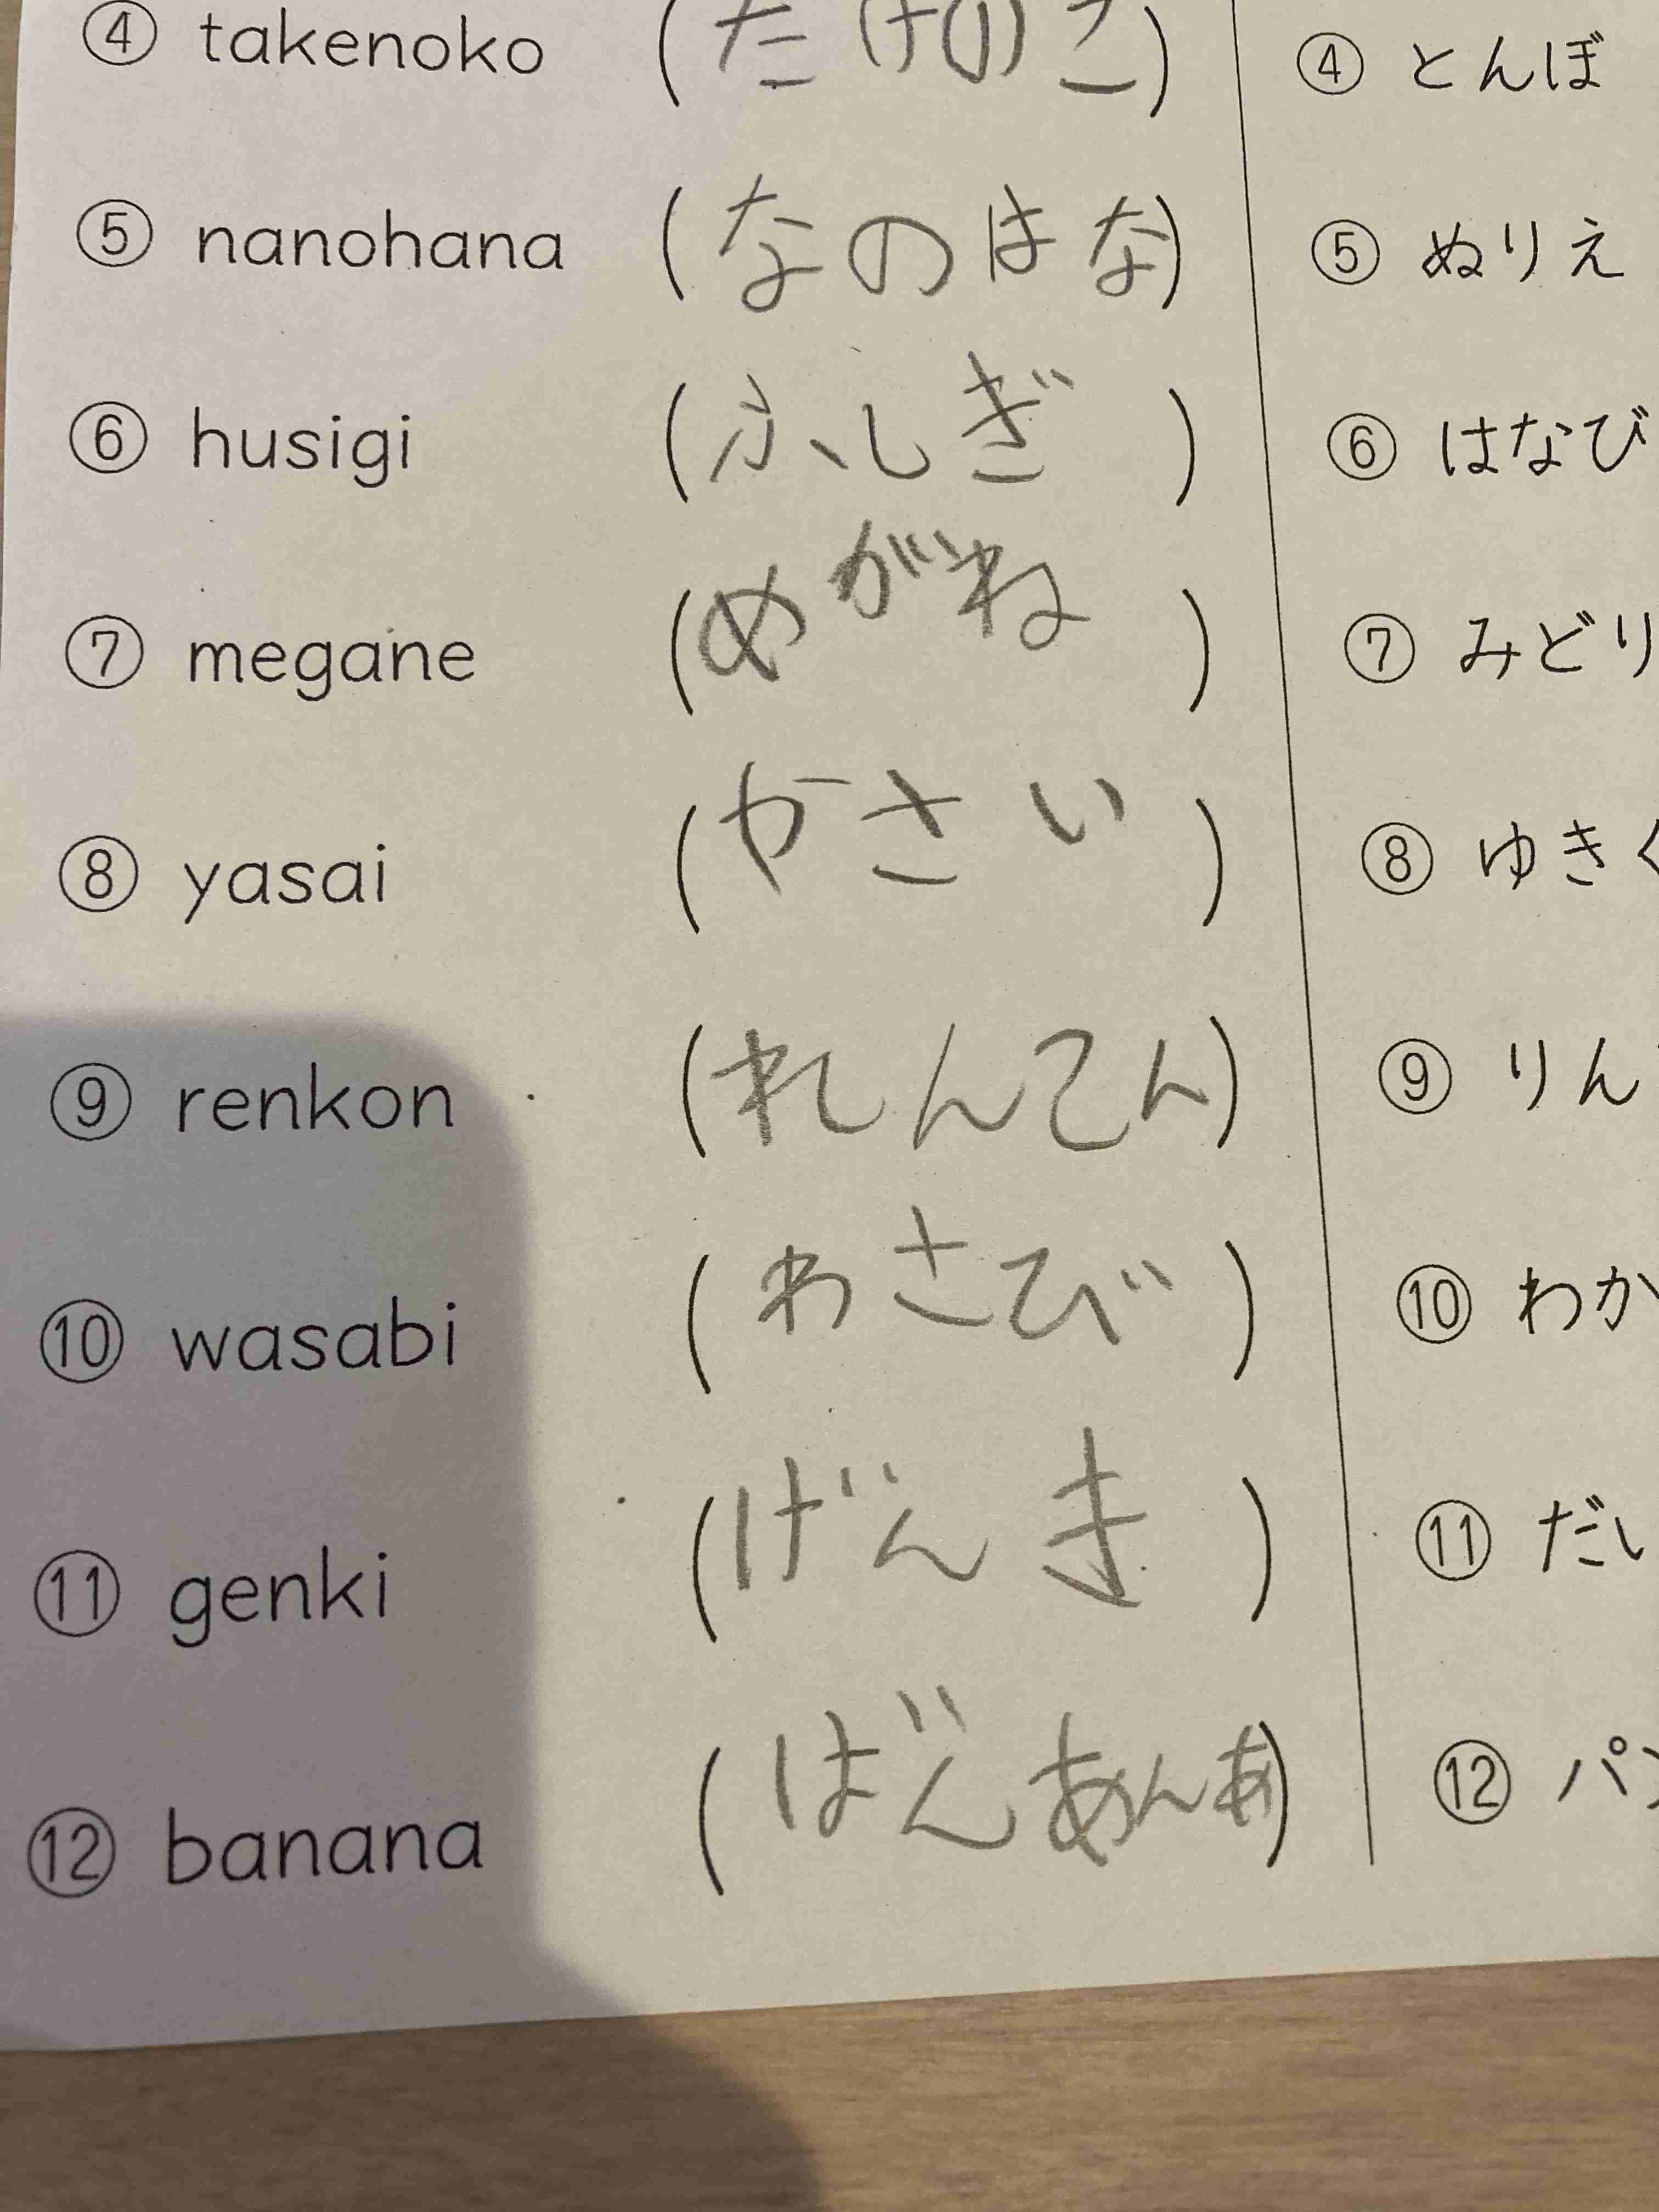 ④ takenoko (たけのこ)
⑤ nanohana (なのはな)
⑥ husigi (ふしぎ)
⑦ megane (めがね)
⑧ yasai (やさい)
⑨ renkon (れんこん)
⑩ wasabi (わさび)
⑪ genki (げんき)
⑫ banana (ばんあんあ)
④ とんぼ
⑤ ぬりえ
⑥ はなび
⑦ みどり
⑧ ゆきく
⑨ りん
⑩ わか
⑪ だい
⑫ パン